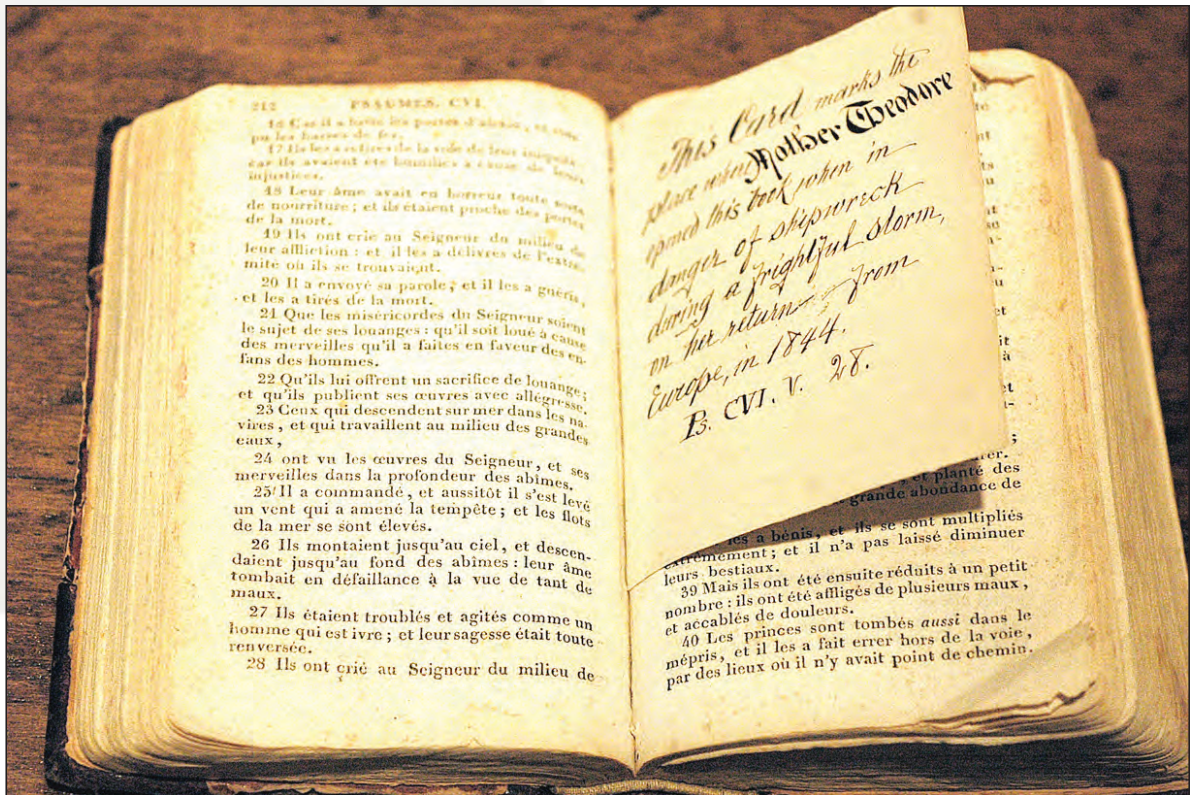 212 PSAUMES. CVI.
16 Car il a brisé les portes d'airain, et
pu les barres de fer.
17 Il les a retirés de la voie de leur iniquité,
car ils avaient été humiliés à cause de leurs
injustices.
18 Leur âme avait en horreur toute sorte
de nourriture ; et ils étaient proche des portes
de la mort.
19 Ils ont crié au Seigneur du milieu de
leur affliction : et il les a délivrés de l'extré-
mité où ils se trouvaient.
20 Il a envoyé sa parole ; et il les a guéris,
et les a tirés de la mort.
21 Que les miséricordes du Seigneur soient
le sujet de ses louanges : qu'il soit loué à cause
des merveilles qu'il a faites en faveur des en-
fans des hommes.
22 Qu'ils lui offrent un sacrifice de louange ;
et qu'ils publient ses œuvres avec allégresse.
23 Ceux qui descendent sur mer dans les na-
vires, et qui travaillent au milieu des grandes
eaux,
24 ont vu les œuvres du Seigneur, et ses
merveilles dans la profondeur des abîmes.
25 Il a commandé, et aussitôt il s'est levé
un vent qui a amené la tempête ; et les flots
de la mer se sont élevés.
26 Ils montaient jusqu'au ciel, et descen-
daient jusqu'au fond des abîmes : leur âme
tombait en défaillance à la vue de tant de
maux.
27 Ils étaient troublés et agités comme un
homme qui est ivre ; et leur sagesse était toute
renversée.
28 Ils ont crié au Seigneur du milieu de
This Card marks the
place when Mother Theodore
opened this book when in
danger of shipwreck
during a frightful storm,
on her return from
Europe, in 1844.
Ps. CVI. V. 28.
et planté des
grande abondance de
les a bénis, et ils se sont multipliés
extrêmement ; et il n'a pas laissé diminuer
leurs bestiaux.
39 Mais ils ont été ensuite réduits à un petit
nombre : ils ont été affligés de plusieurs maux,
et accablés de douleurs.
40 Les princes sont tombés aussi dans le
mépris, et il les a fait errer hors de la voie,
par des lieux où il n'y avait point de chemin.